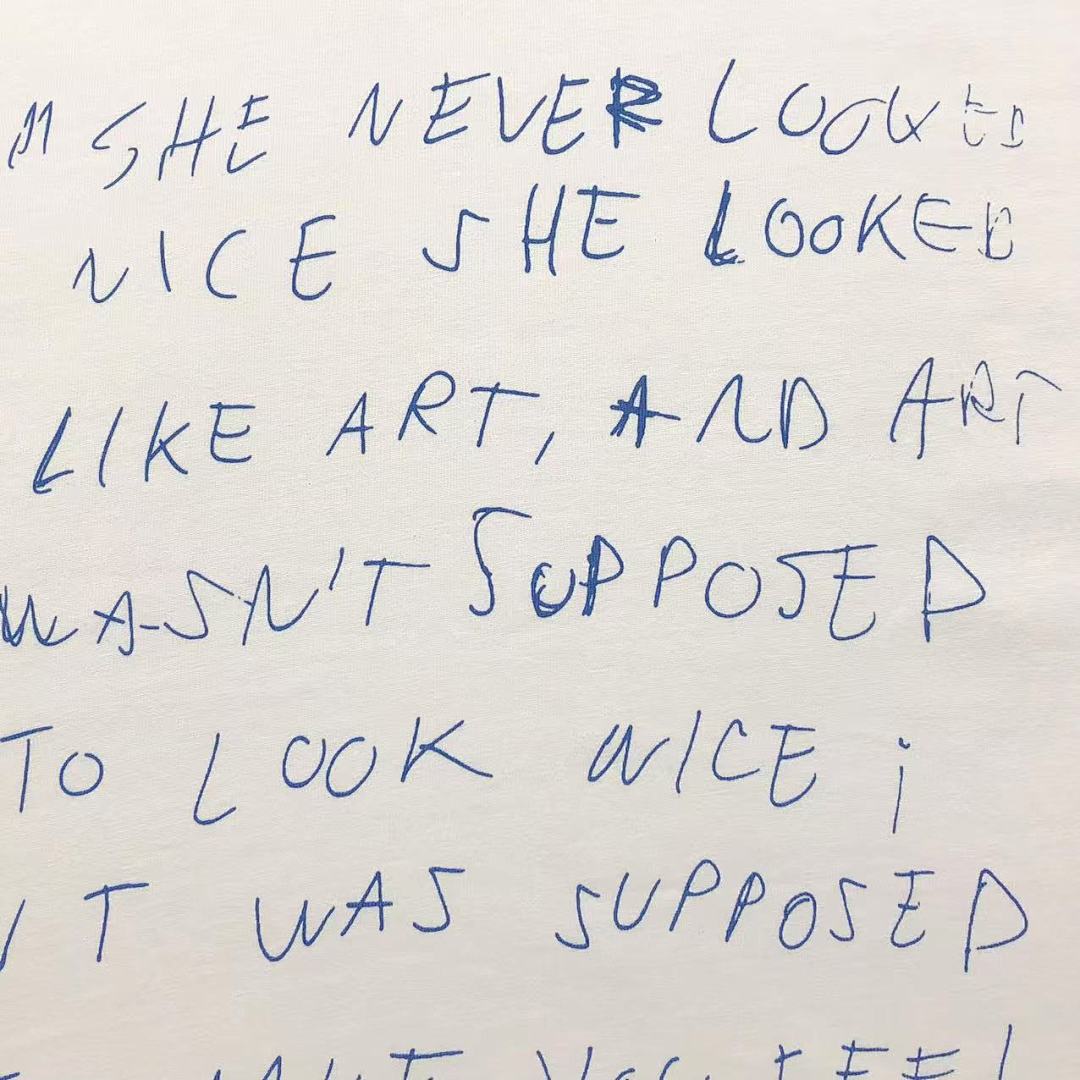 SHE NEVER LOOKED
NICE SHE LOOKED
LIKE ART, AND ART
WASN'T SUPPOSED
TO LOOK NICE;
IT WAS SUPPOSED
YOU FEEL